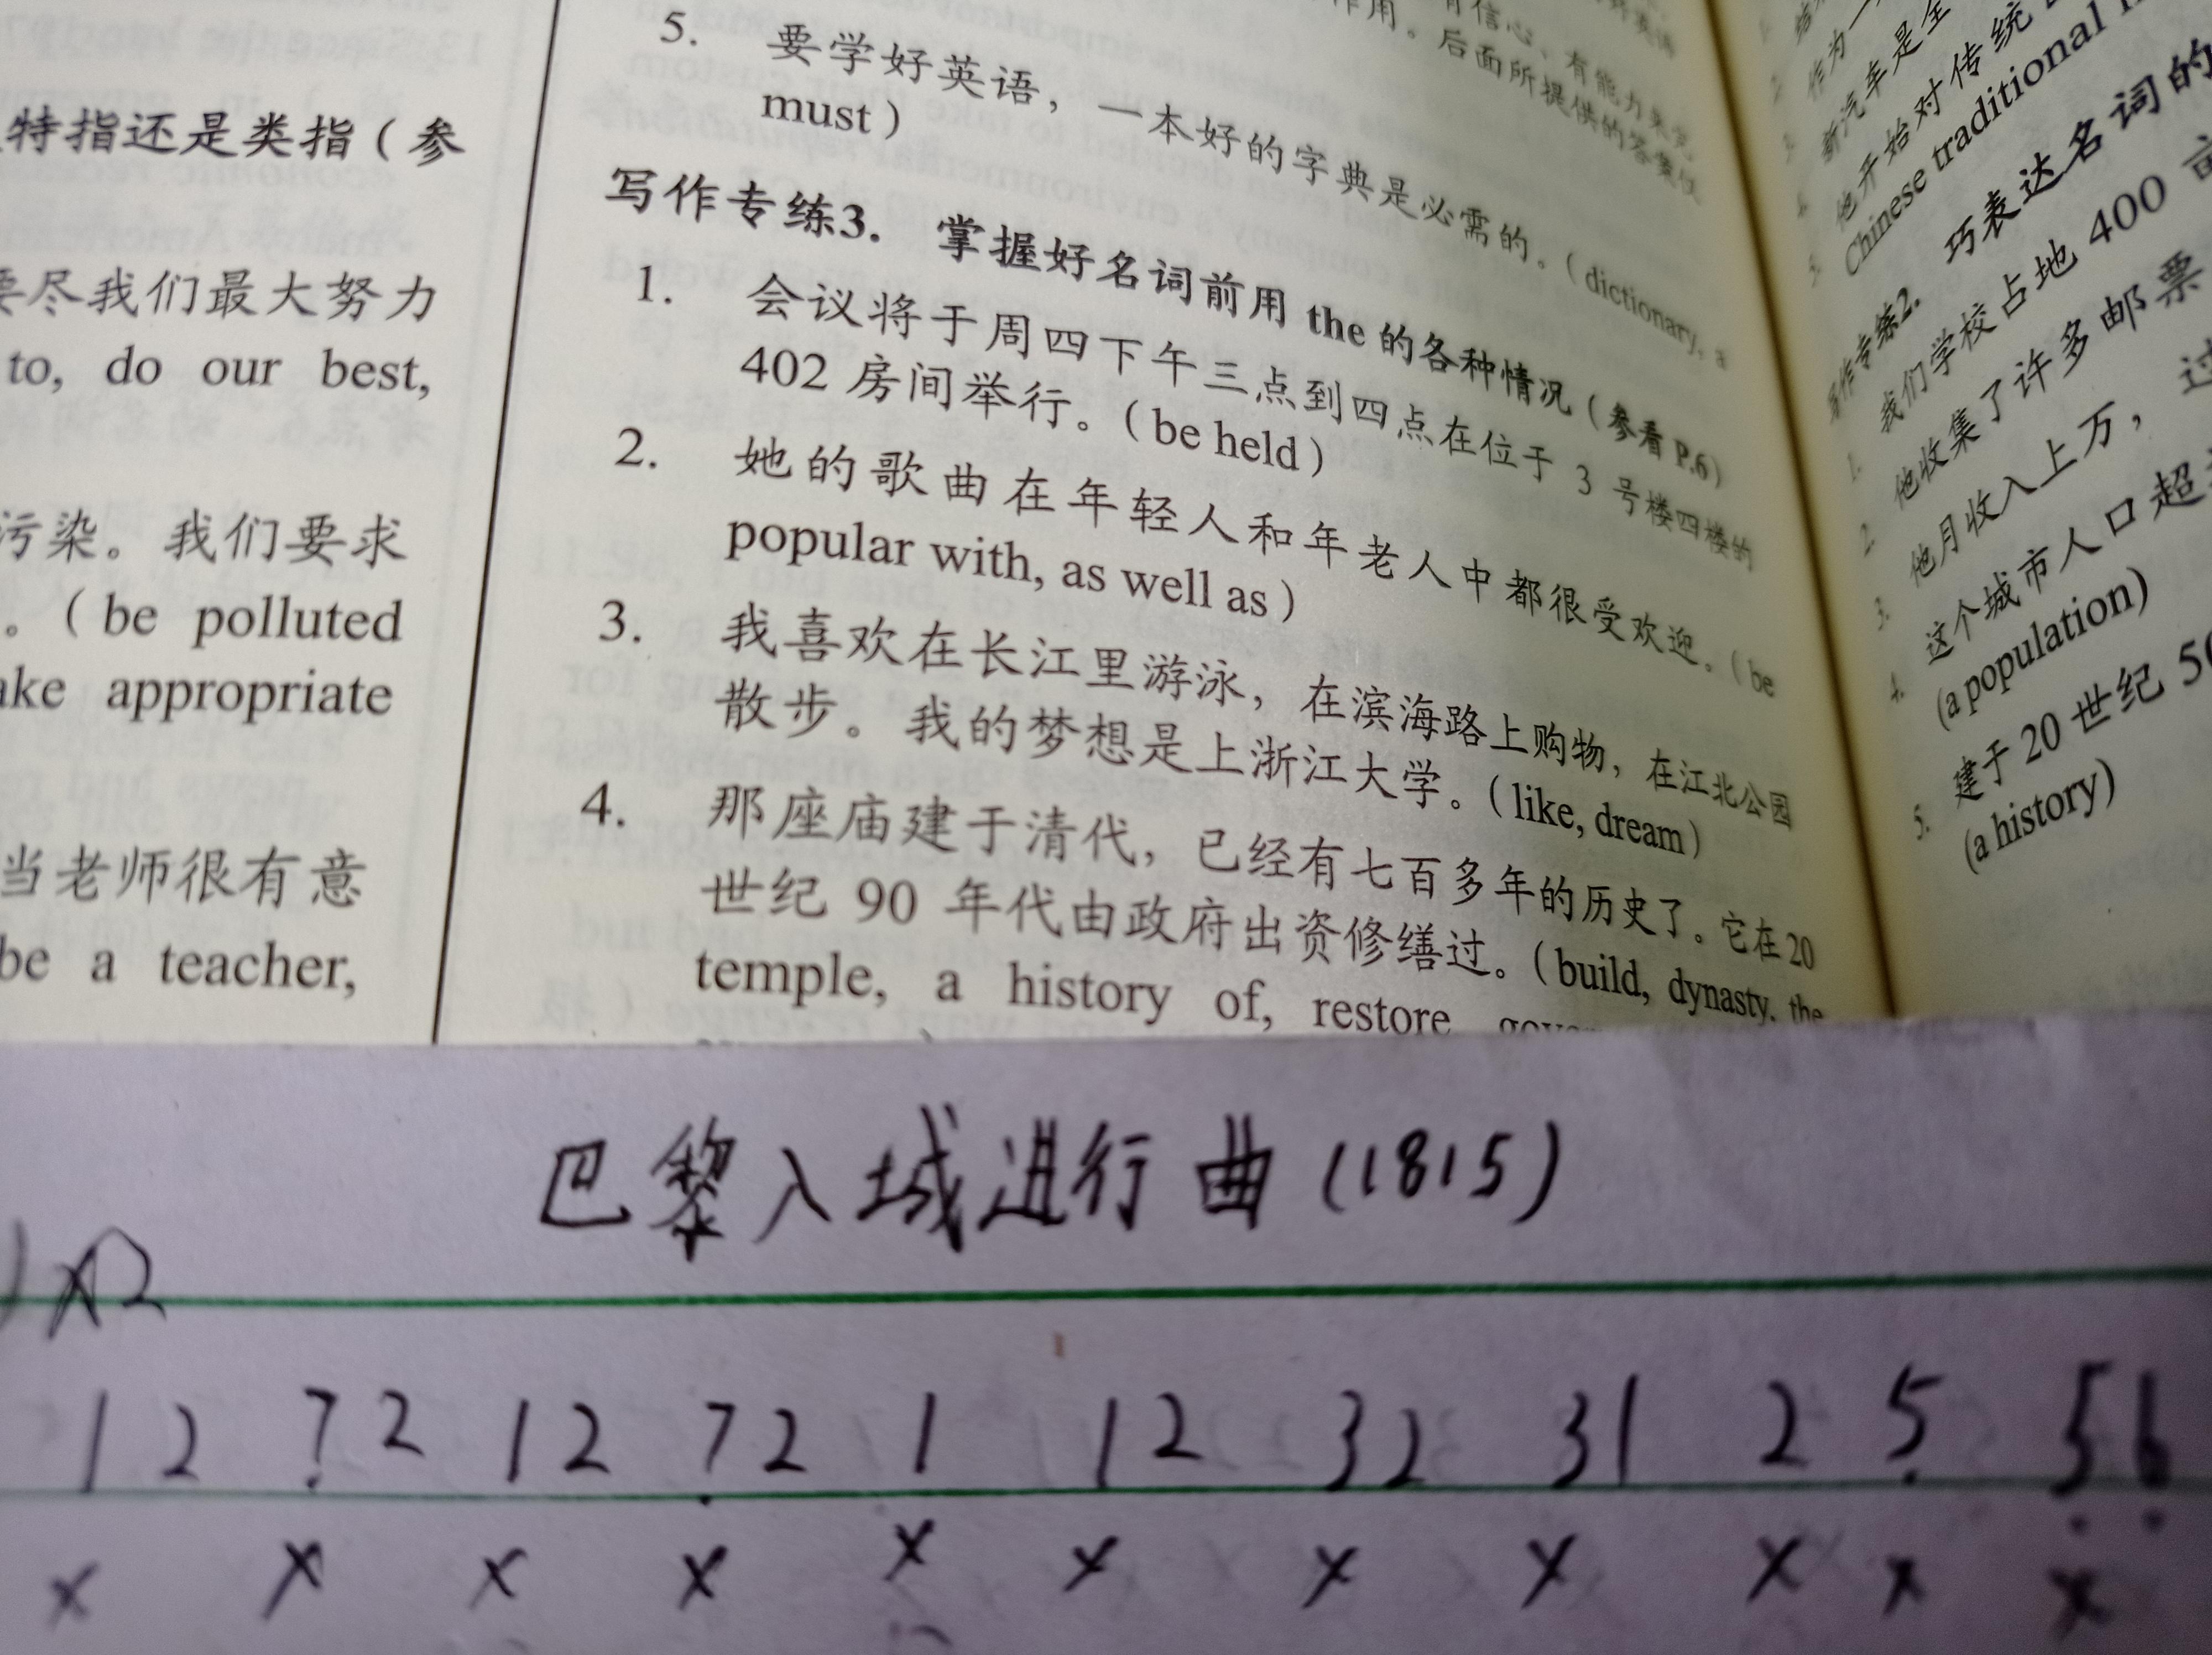 特指还是类指（参
要尽我们最大努力
to, do our best,
污染。我们要求
。（be polluted
appropriate
当老师很有意
be a teacher,
作用。后面所提供的答案仅
5. 要学好英语，一本好的字典是必需的。（dictionary, a
must）
写作专练3. 掌握好名词前用 the 的各种情况（参看 P.6）
1. 会议将于周四下午三点到四点在位于 3 号楼四楼的
402 房间举行。（be held）
2. 她的歌曲在年轻人和年老人中都很受欢迎。（be
popular with, as well as）
3. 我喜欢在长江里游泳，在滨海路上购物，在江北公园
散步。我的梦想是上浙江大学。（like, dream）
4. 那座庙建于清代，已经有七百多年的历史了。它在20
世纪 90 年代由政府出资修缮过。（build, dynasty, the
temple, a history of, restore,
2. 作为一
3. 新汽车是全
4. 他开始对传统
Chinese traditional
5. 巧表达名词的
写作专练2.
1. 我们学校占地 400 亩
2. 他收集了许多邮票
3. 他月收入上万，过
4. 这个城市人口超
(a population)
5. 建于 20 世纪 50
(a history)
巴黎入城进行曲（1815）
x2
1 2 7 2 1 2 7 2 1 1 2 3 2 3 1 2 5 5 6
x x x x x x x x x x x